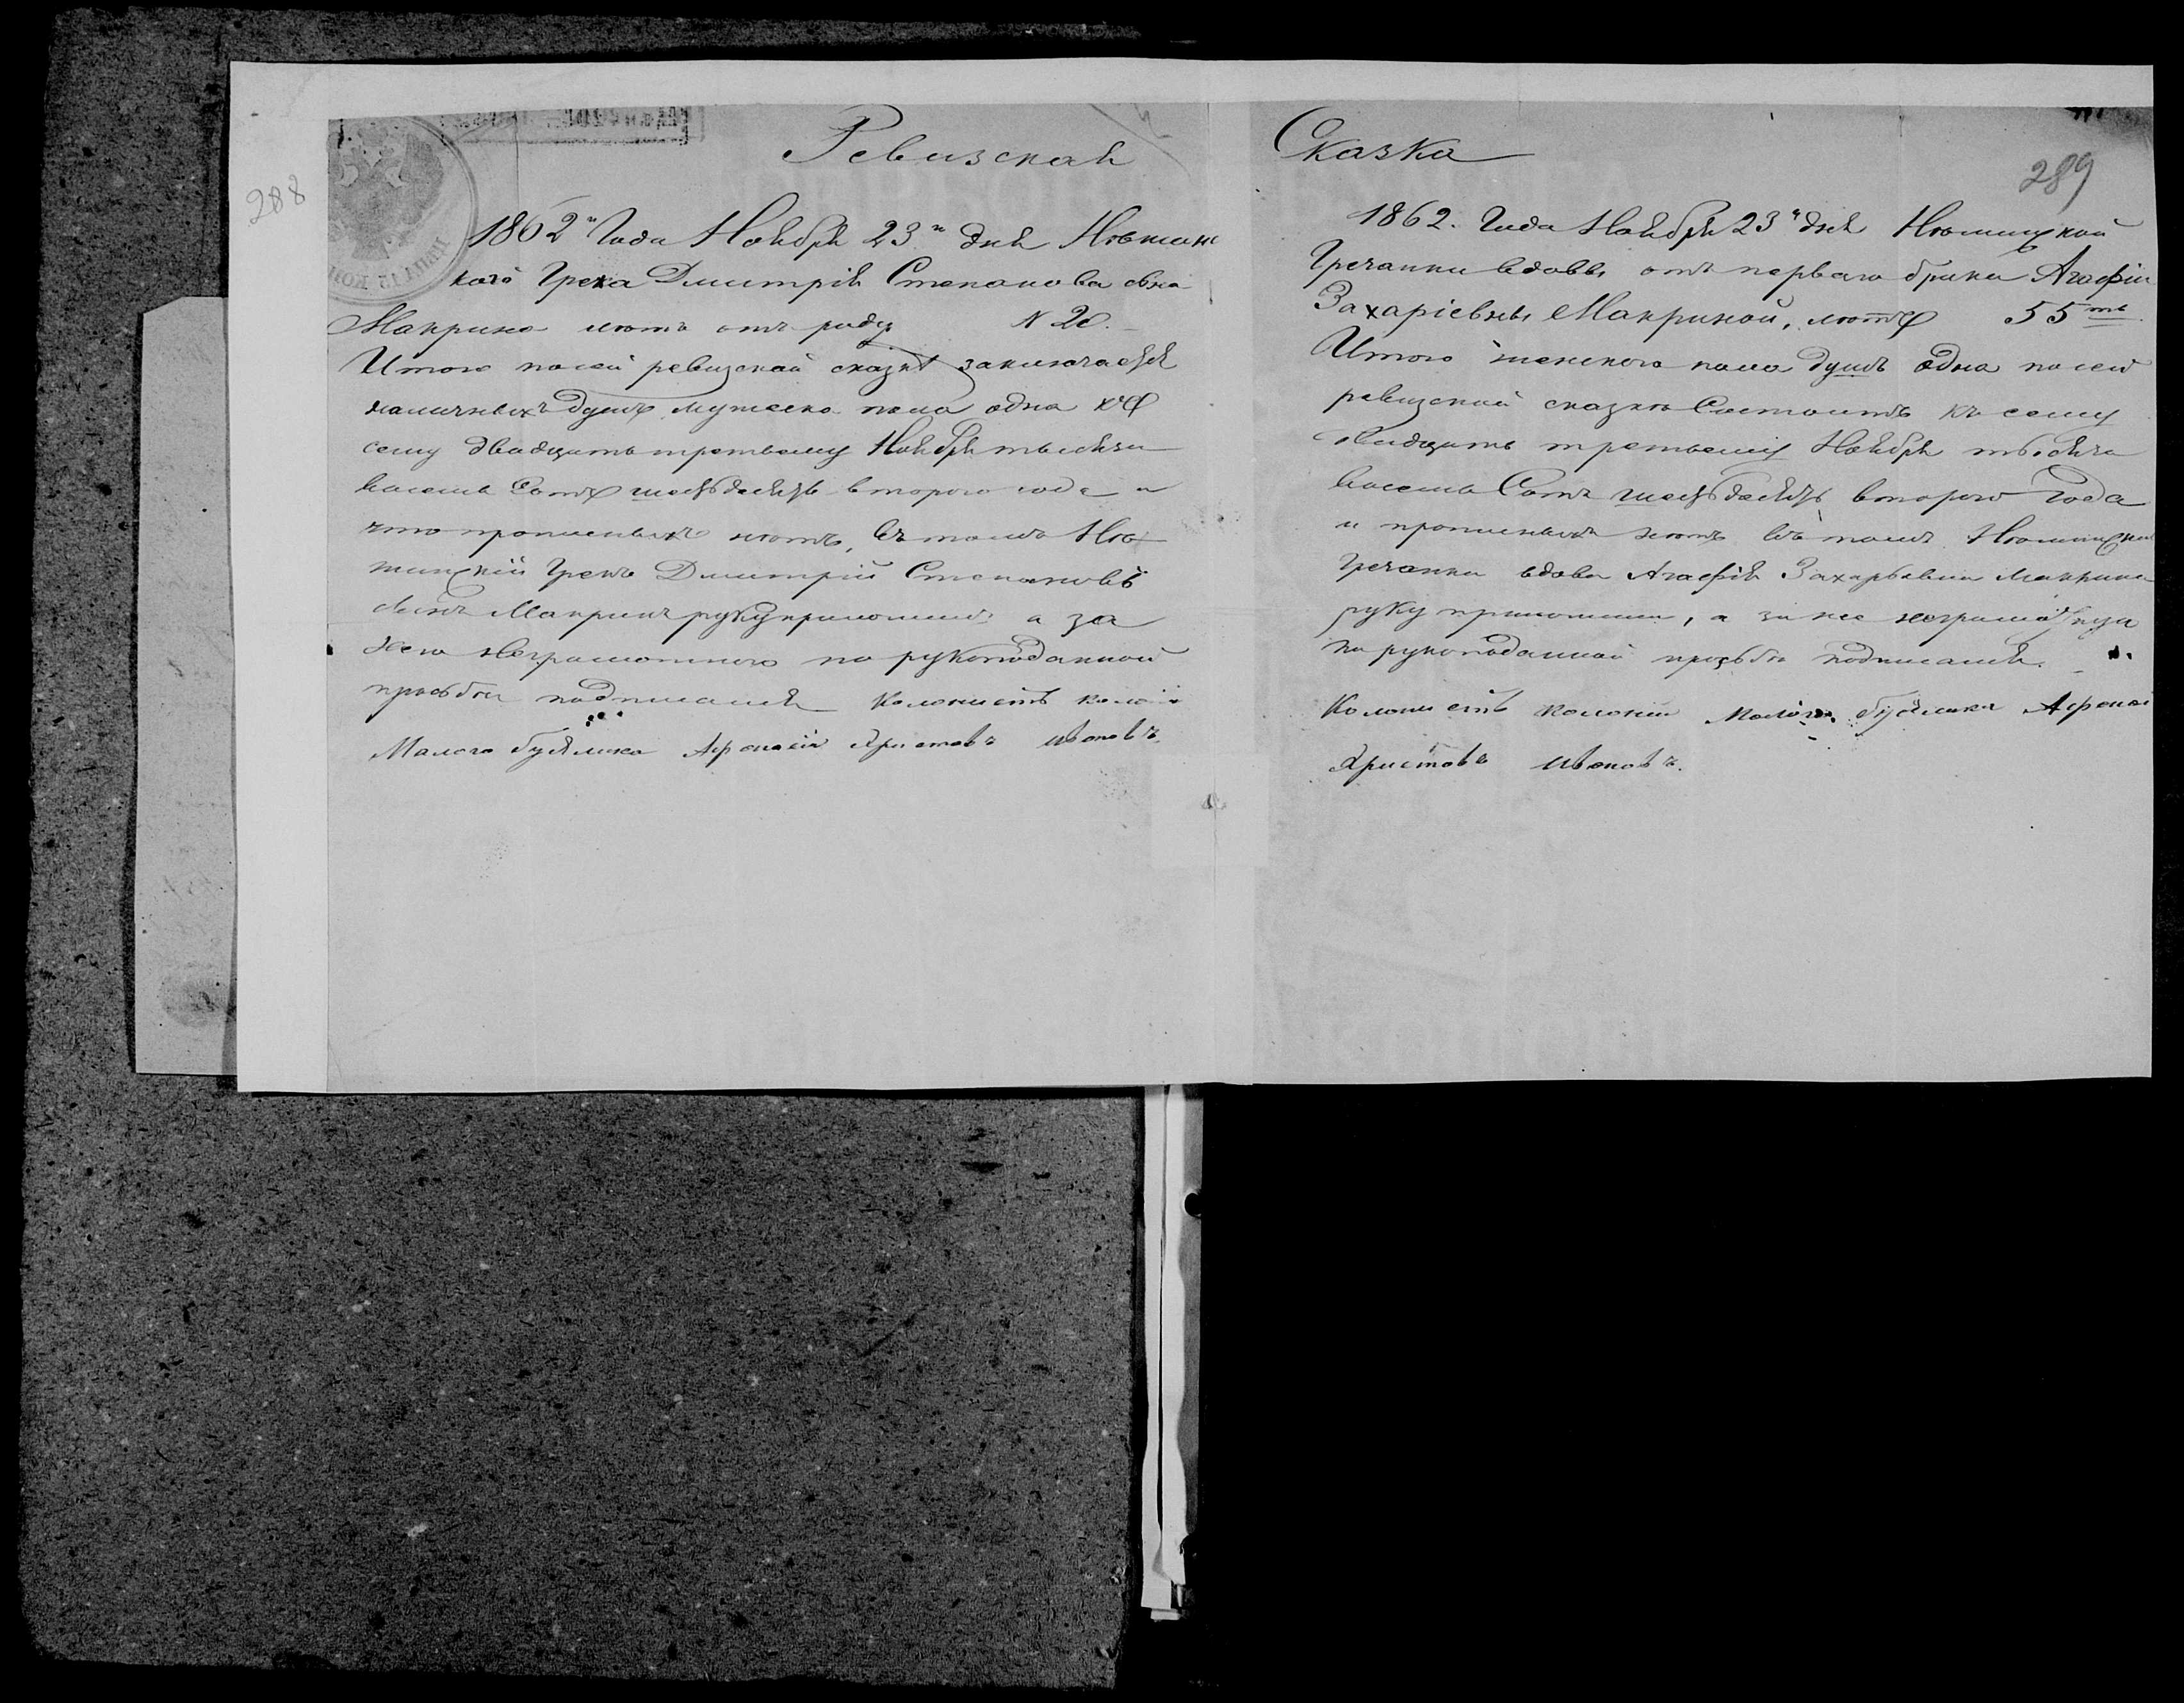 288
Ревизская
1862го Года Ноября 23го дня Нѣжинс
каго Грека Дмитрія Степанова сына
Макрина лѣтъ отъ роду № 20.
Итого посей ревизской сказкѣ заключается
наличныхъ душъ мужеска пола одна къ
сему двадцать третьему Ноября тысяча
восемь Сотъ шестьдесятъ второго года и
что прописныхъ нѣтъ, Въ томъ Нѣ-
жинскій Грекъ Дмитрій Степановъ
сынъ Макринъ руку приложилъ а за
него неграмотного по рукоподанной
прозбѣ подписался колонистъ колоніи
Малого буялыка Афонасій Христовъ Ивановъ.
Сказка
289
1862. Года Ноября 23го дня Нѣжинской
Гречанки вдовы отъ перваго брака Агафіи
Захаріевны Макриной, лѣтъ 55ть
Итого женского пола душъ одна посей
ревизской сказкѣ Состоитъ къ сему
двадцать третьему Ноября тысяча
восемь Сотъ шестьдесятъ второго Года
и прописныхъ нѣтъ въ томъ Нѣжинская
Гречанка вдова Агафія Захарьевна Макрина
руку приложила, а за нее неграмотную
по рукоподанной прозбѣ подписался.
Колонистъ колоніи Малого буялыка Афонасій
Христовъ Ивановъ.